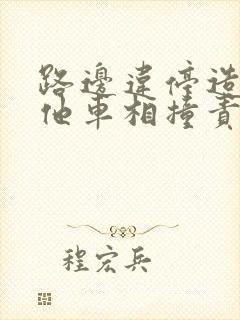 路邊違停造
他車相撞責
程宏兵